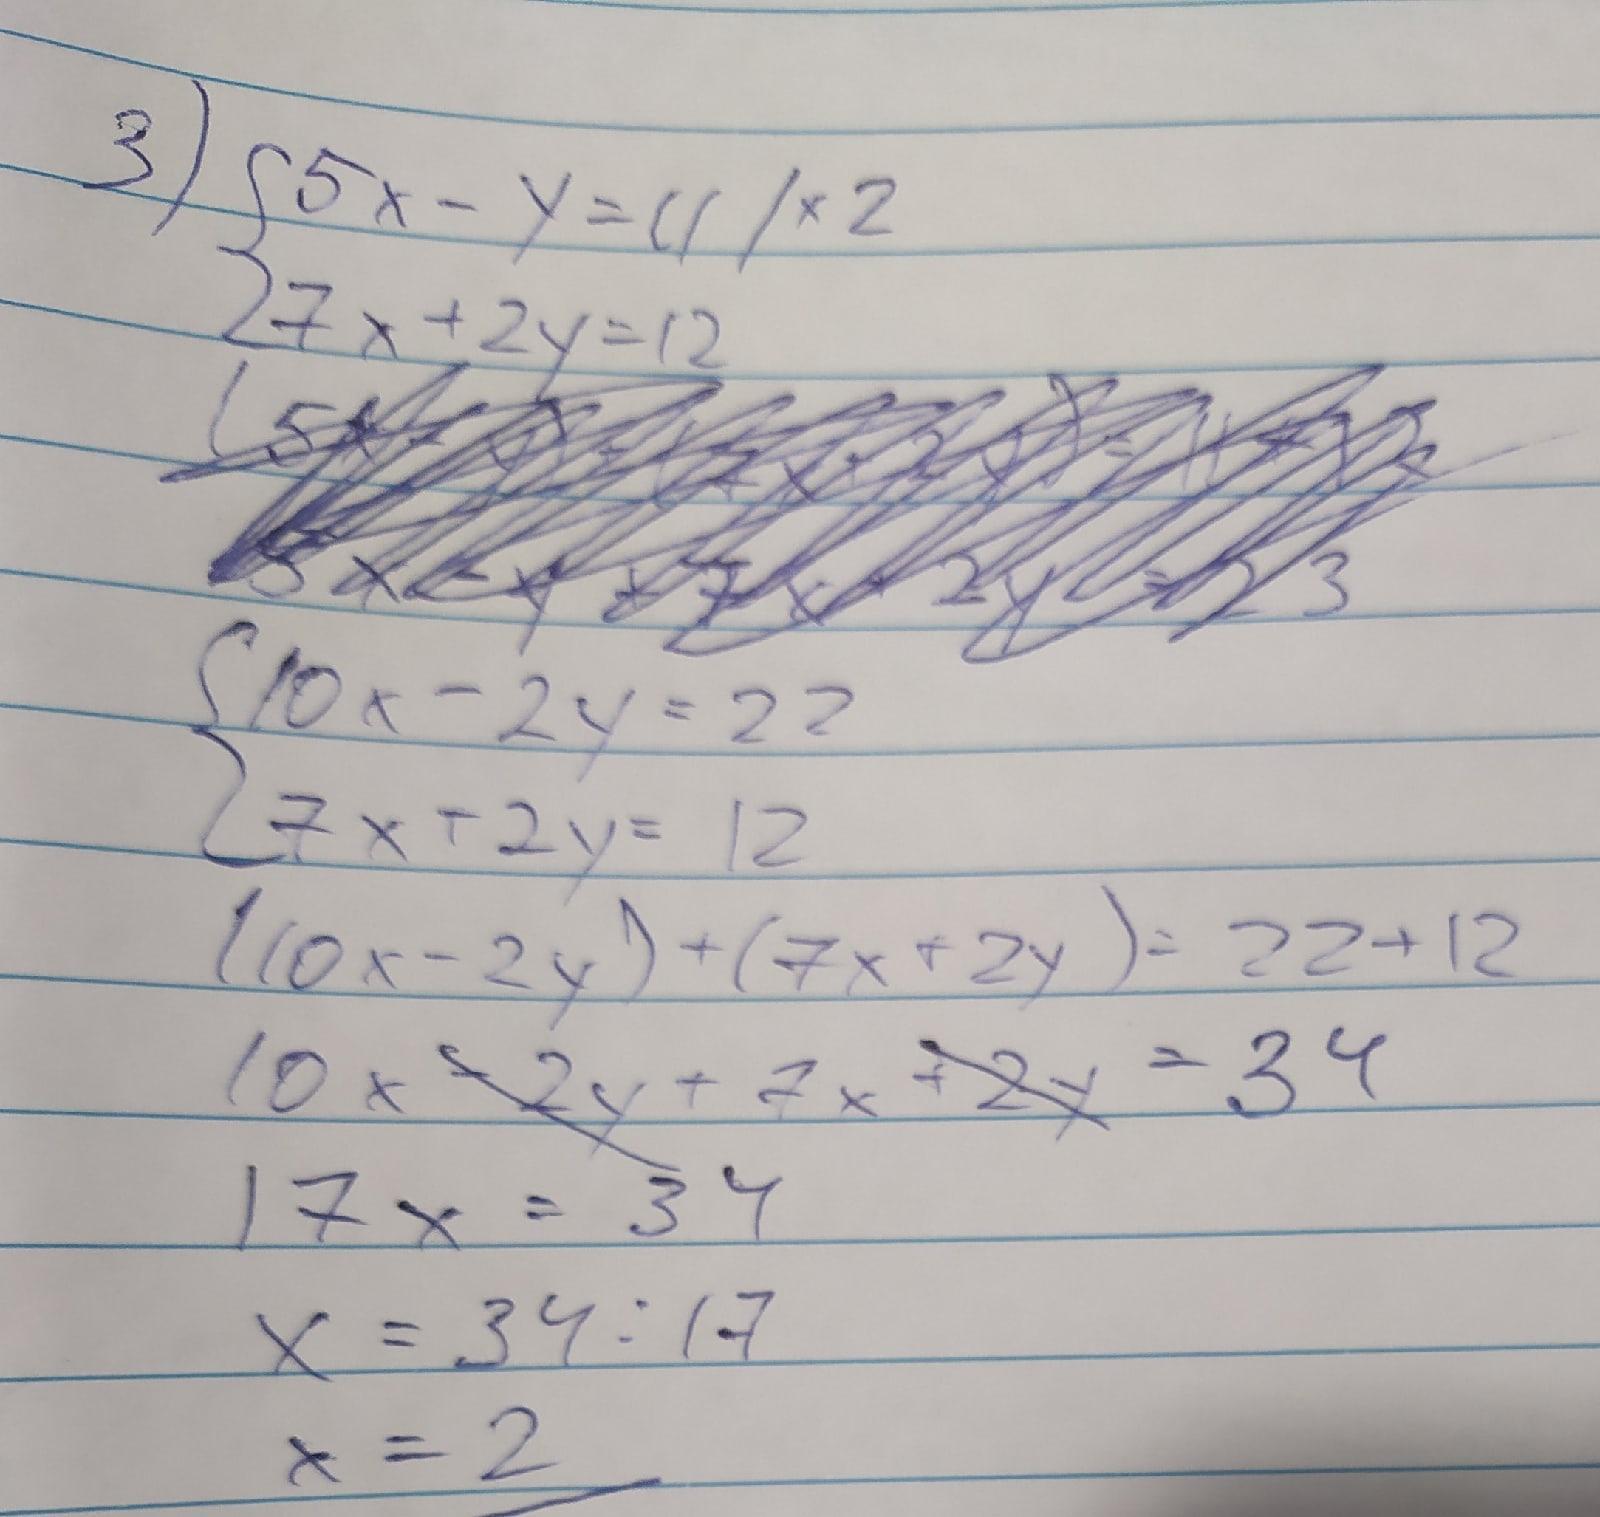 3) { 5x - y = 11 / × 2
7x + 2y = 12
{ 10x - 2y = 22
7x + 2y = 12
(10x - 2y) + (7x + 2y) = 22 + 12
10x - 2y + 7x + 2y = 34
17x = 34
x = 34 : 17
x = 2